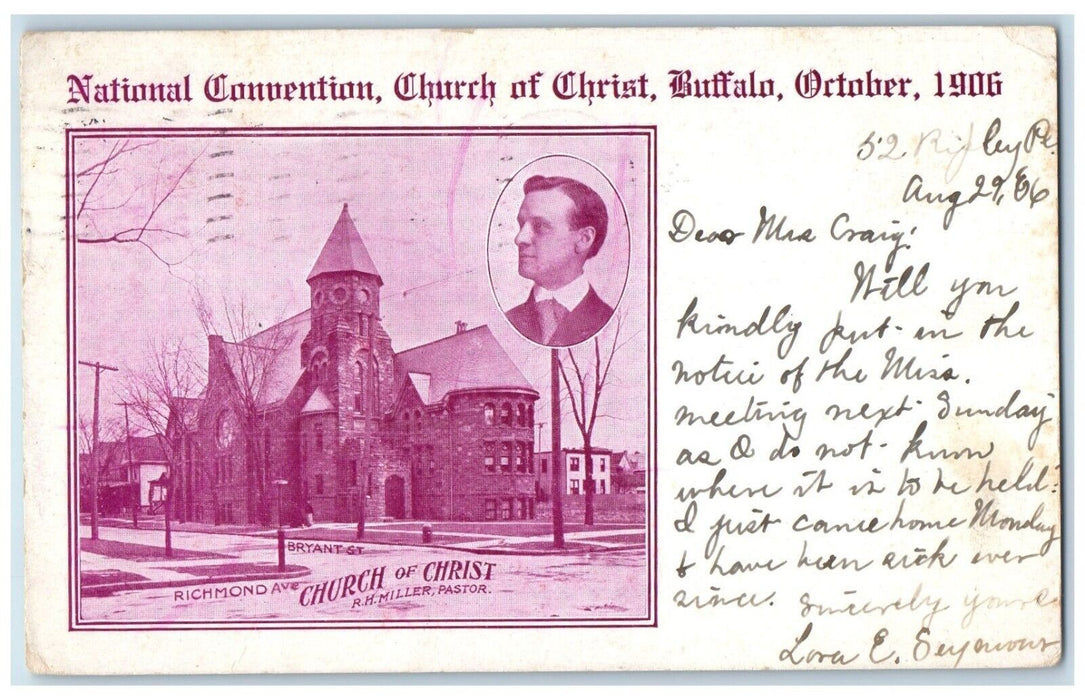 National Convention, Church of Christ, Buffalo, October, 1906
52 Ripley Pl.
Aug 29, 06
Dear Mrs Craig:
Will you
kindly put in the
notice of the Miss.
meeting next Sunday
as I do not know
where it is to be held.
I just came home Monday
& have been sick ever
since. Sincerely yours
Lora E. Seymour
BRYANT ST.
RICHMOND AVE
CHURCH OF CHRIST
R.H. MILLER, PASTOR.